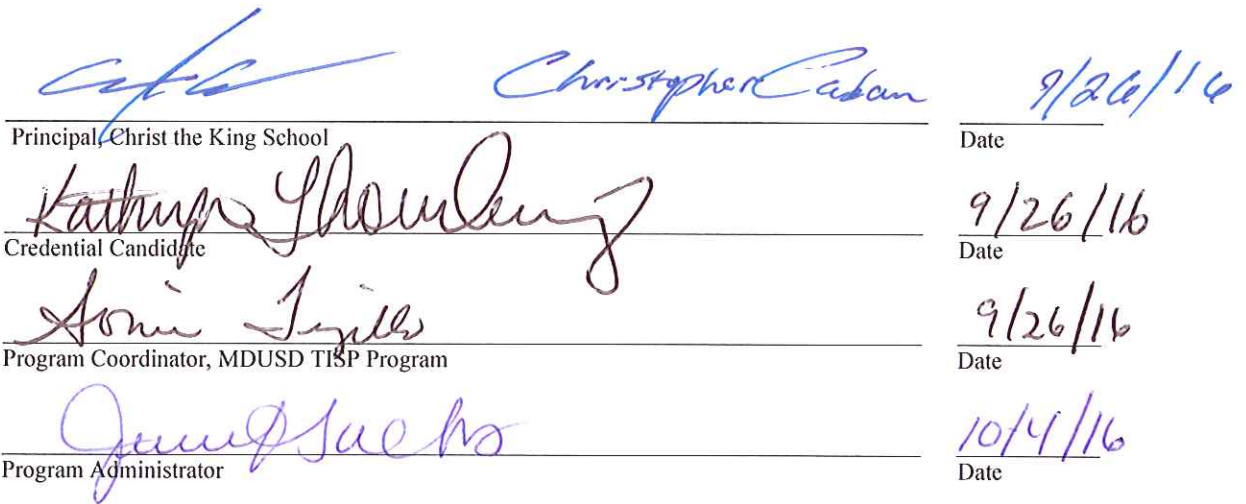 Christopher Caban 9/26/16
Principal, Christ the King School Date
Kathryn 9/26/16
Credential Candidate Date
Sonia 9/26/16
Program Coordinator, MDUSD TISP Program Date
10/4/16
Program Administrator Date